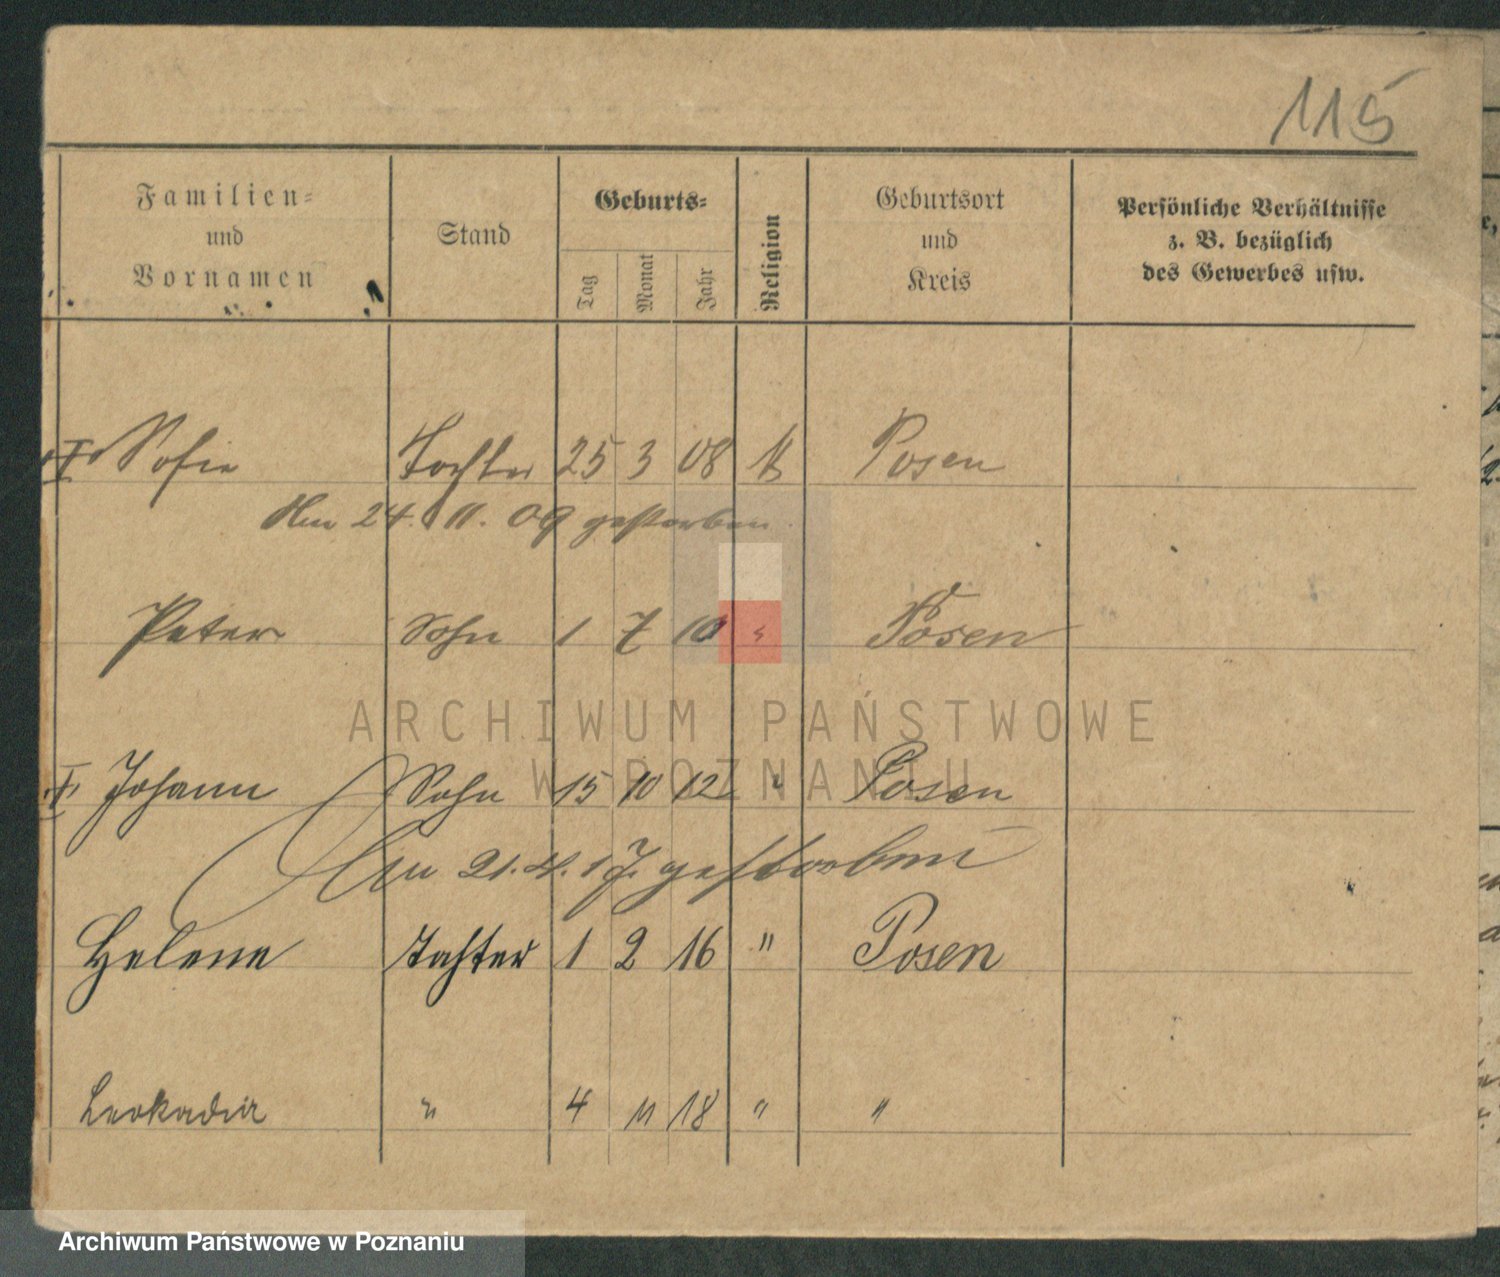 115
Familien= und Vornamen
Stand
Geburts=
Tag
Monat
Jahr
Religion
Geburtsort und Kreis
Persönliche Verhältnisse
z. B. bezüglich
des Gewerbes usw.
Sofie Tochter 25 3 08 K Posen
Am 24. 11. 09 gestorben.
Peter Sohn 1 7 10 " Posen
ARCHIWUM PAŃSTWOWE
W POZNANIU
Johann Sohn 15 10 12 " Posen
Am 21. 4. 17. gestorben
Helene Tochter 1 2 16 " Posen
Leokadia " 4 11 18 " "
Archiwum Państwowe w Poznaniu